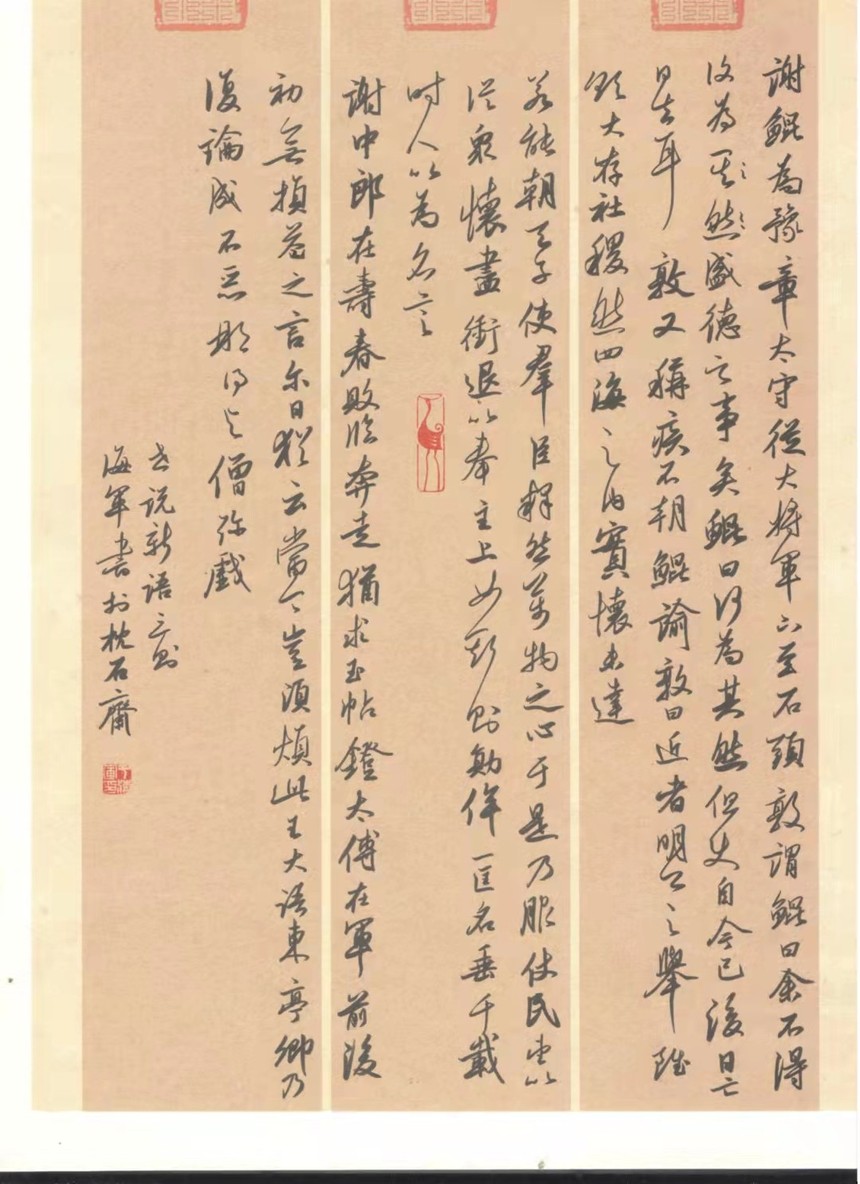 謝鯤為豫章太守從大將軍下至石頭敦謂鯤曰余不得
復為然盛德之事矣鯤曰何為其然但使自今已後日亡
日去耳敦又稱疾不朝鯤諭敦曰近者明公之舉雖
欲大存社稷然四海之内實懷未達
若能朝天子使羣臣釋然萬物之心于是乃服仗民望以
從眾懷盡衝退以奉主上如斯則勛侔一匡名垂千載
時人以為名言
謝中郎在壽春敗臨奔走猶求玉帖鐙太傅在軍前後
初無損益之言尔日猶云當今豈須煩此王大語東亭卿乃
復論成不惡那得与僧弥戲
世说新語三則
海軍書於枕石齋